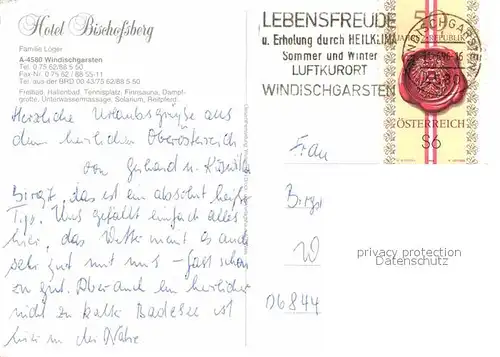 Hotel Bischofsberg
Familie Löger
A-4580 Windischgarsten
Tel. 0 75 62/88 5 60
Fax-Nr. 0 75 62 / 88 55-11
Tel. aus der BRD 00 43/75 62/88 5 60
Freibad, Hallenbad, Tennisplatz, Finnsauna, Dampf-
grotte, Unterwassermassage, Solarium, Reitpferd
Herzliche Urlaubsgrüße aus
dem herrlichen Oberösterreich
von Gerhard u.
Birgit, das ist ein absolut heißer
Tip. Uns gefällt einfach alles
hier, das Wetter meint es auch
sehr gut mit uns – fast schon
zu gut. Aber auch ein herrlicher
nicht zu kalter Badesee ist
hier in der Nähe
LEBENSFREUDE
u. Erholung durch HEILKLIMA
Sommer und Winter
LUFTKURORT
WINDISCHGARSTEN
WINDISCHGARSTEN
4580
REPUBLIK
ÖSTERREICH
S6
Frau
Birgit
W
D6844
privacy protection
Datenschutz